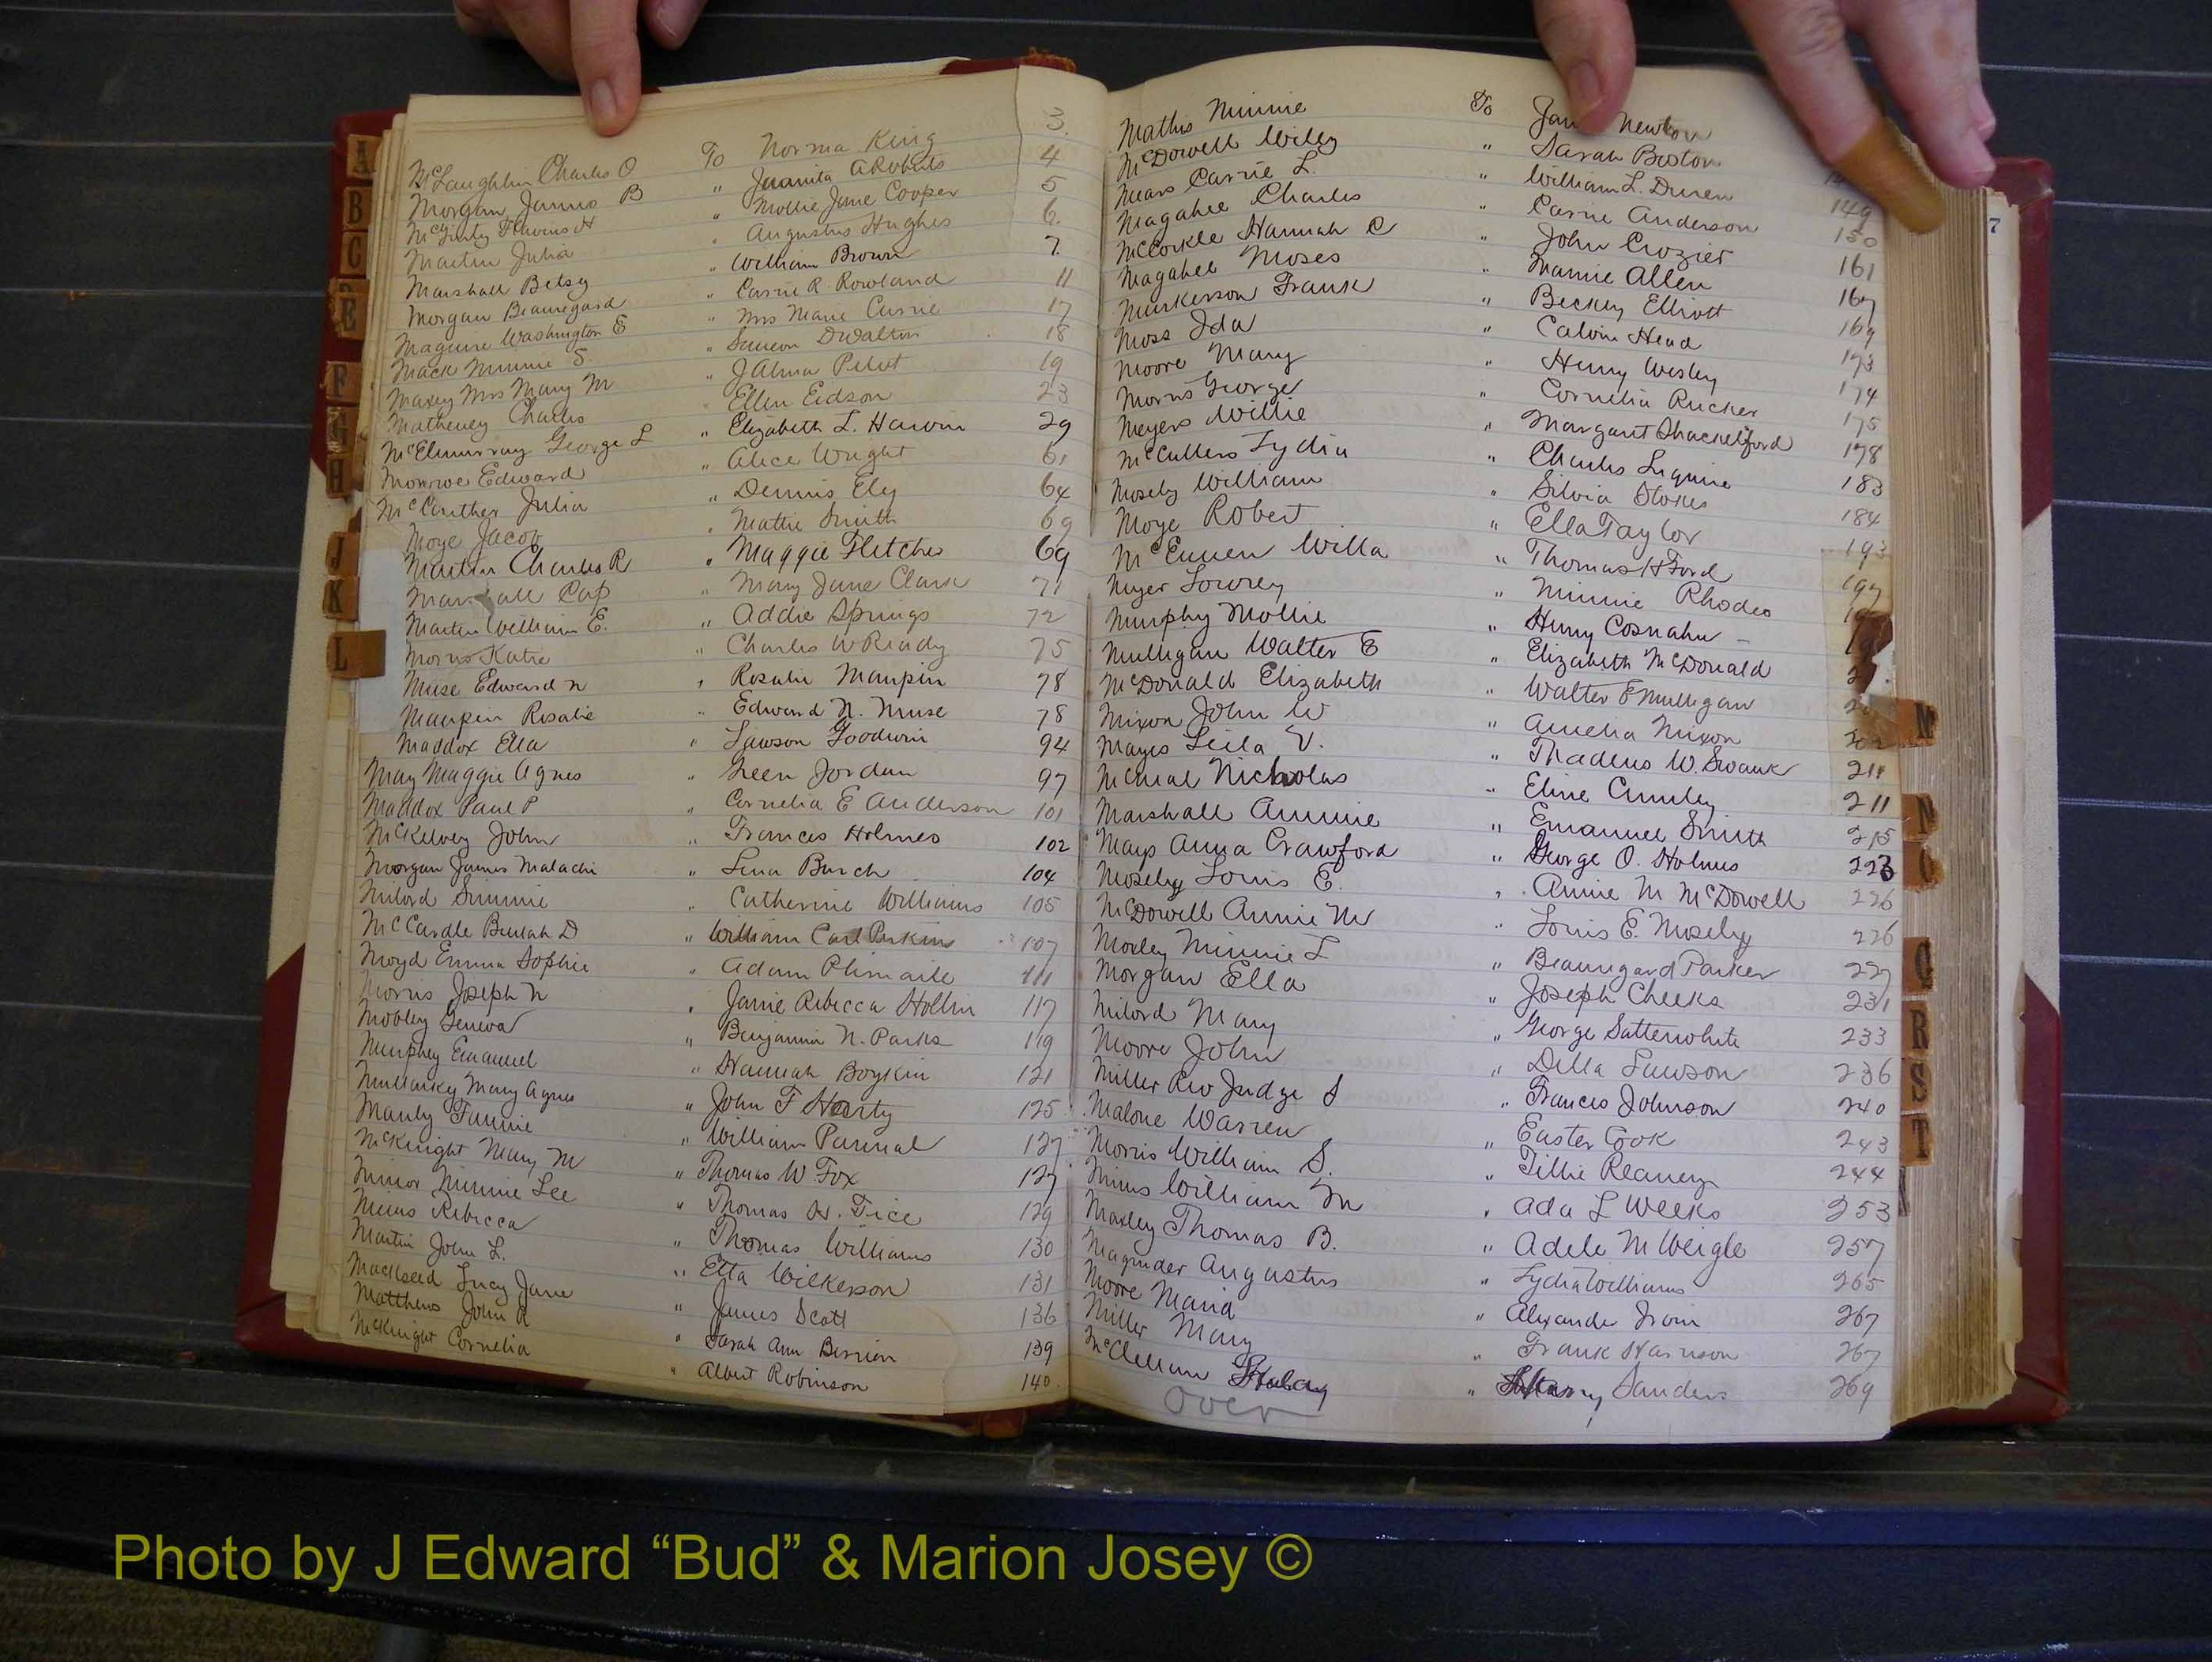 McLaughlin Charles O To Norma King 3
Morgan James B " Juanita A Roberts 4
McGinty Flavius H " Mollie Jane Cooper 5
Martin Julia " Augustus Hughes 6
Marshall Betsy " William Brown 7
Morgan Beauregard " Carrie R. Rowland 11
Maguire Washington E " Mrs Marie Currie 17
Mack Minnie S. " Simeon D Walton 18
Maxey Mrs Mary M " J Alma Pelot 19
Matheney Charles " Ellen Eidson 23
McElmurray George L " Elizabeth L. Harvin 29
Monroe Edward " Alice Wright 61
McCanther Julia " Dennis Ely 64
Moye Jacob " Mattie Smith 69
Martin Charles R " Maggie Fletcher 69
Marshall Cap " Mary Jane Clark 71
Martin William E. " Addie Springs 72
Morris Katie " Charles W Ready 75
Muse Edward N " Rosalie Maupin 78
Maupin Rosalie " Edward N. Muse 78
Maddox Ella " Lawson Goodwin 94
May Maggie Agnes " Green Jordan 97
Maddox Paul P " Cornelia E Anderson 101
McKelvey John " Frances Holmes 102
Morgan James Malachi " Lena Burch 104
Milord Simmie " Catherine Williams 105
McCardle Beulah D " William Carl Perkins 107
Moyd Emma Sophie " Adam Plimaile 111
Morris Joseph N " Janie Rebecca Hollin 117
Mobley Geneva " Benjamin N. Parks 119
Murphey Emanuel " Hannah Boykin 121
Mullarkey Mary Agnes " John F Harty 125
Manly Fannie " William Parmal 127
McKnight Mary M " Thomas W. Fox 127
Minor Minnie Lee " Thomas H. Tice 129
Mims Rebecca " Thomas Williams 130
Martin John L. " Etta Wilkerson 131
Mackseed Lucy Jane " James Scott 136
Matthews John R " Sarah Ann Berrien 139
McKnight Cornelia " Albert Robinson 140
Mathis Minnie To Newton
McDowell Wiley " Sarah Boston
Mears Carrie L. " William L. Duren
Magahee Charles " Carrie Anderson 149
McCorkle Hannah C " John Crozier 150
Magahee Moses " Mamie Allen 161
Murkerson Frank " Beckey Elliott 167
Moss Ida " Calvin Head 169
Moore Mary " Henry Wesley 173
Morris George " Cornelia Rucker 174
Meyers Willie " Margaret Shackelford 175
McCullers Lydia " Charles Luquire 178
Mosely William " Silvia Stokes 183
Moye Robert " Ella Taylor 184
McEuen Willa " Thomas H Ford 193
Meyer Lowrey " Minnie Rhodes 197
Murphy Mollie " Henry Cosnahan
Mulligan Walter E " Elizabeth McDonald
McDonald Elizabeth " Walter E Mulligan
Mixon John W " Amelia Nixon
Mayes Leila V. " Thadeus W. Swank 211
McNeal Nicholas " Eline Crumley 211
Marshall Ammie " Emanuel Smith 215
Mays Anna Crawford " George O. Holmes 223
Moseley Louis E. " Annie M McDowell 226
McDowell Annie M " Louis E. Moseley 226
Moxley Minnie L " Beauregard Parker 227
Morgan Ella " Joseph Cheeks 231
Milord Mary " George Satterwhite 233
Moore John " Della Lawson 236
Miller Rev Judge S " Frances Johnson 240
Malone Warren " Easter Cook 243
Morris William S. " Tillie Reaney 244
Mims William M " Ada L Weeks 253
Moxley Thomas B. " Adele M Weigle 257
Magruder Augustus " Lydia Williams 265
Moore Maria " Alexander Irvin 267
Miller Mary " Frank Harrison 267
McClellam " Harry Sanders 269
Over
A
B
C
E
F
G
H
J
K
L
M
N
O
Q
R
S
T
7
Photo by J Edward “Bud” & Marion Josey ©